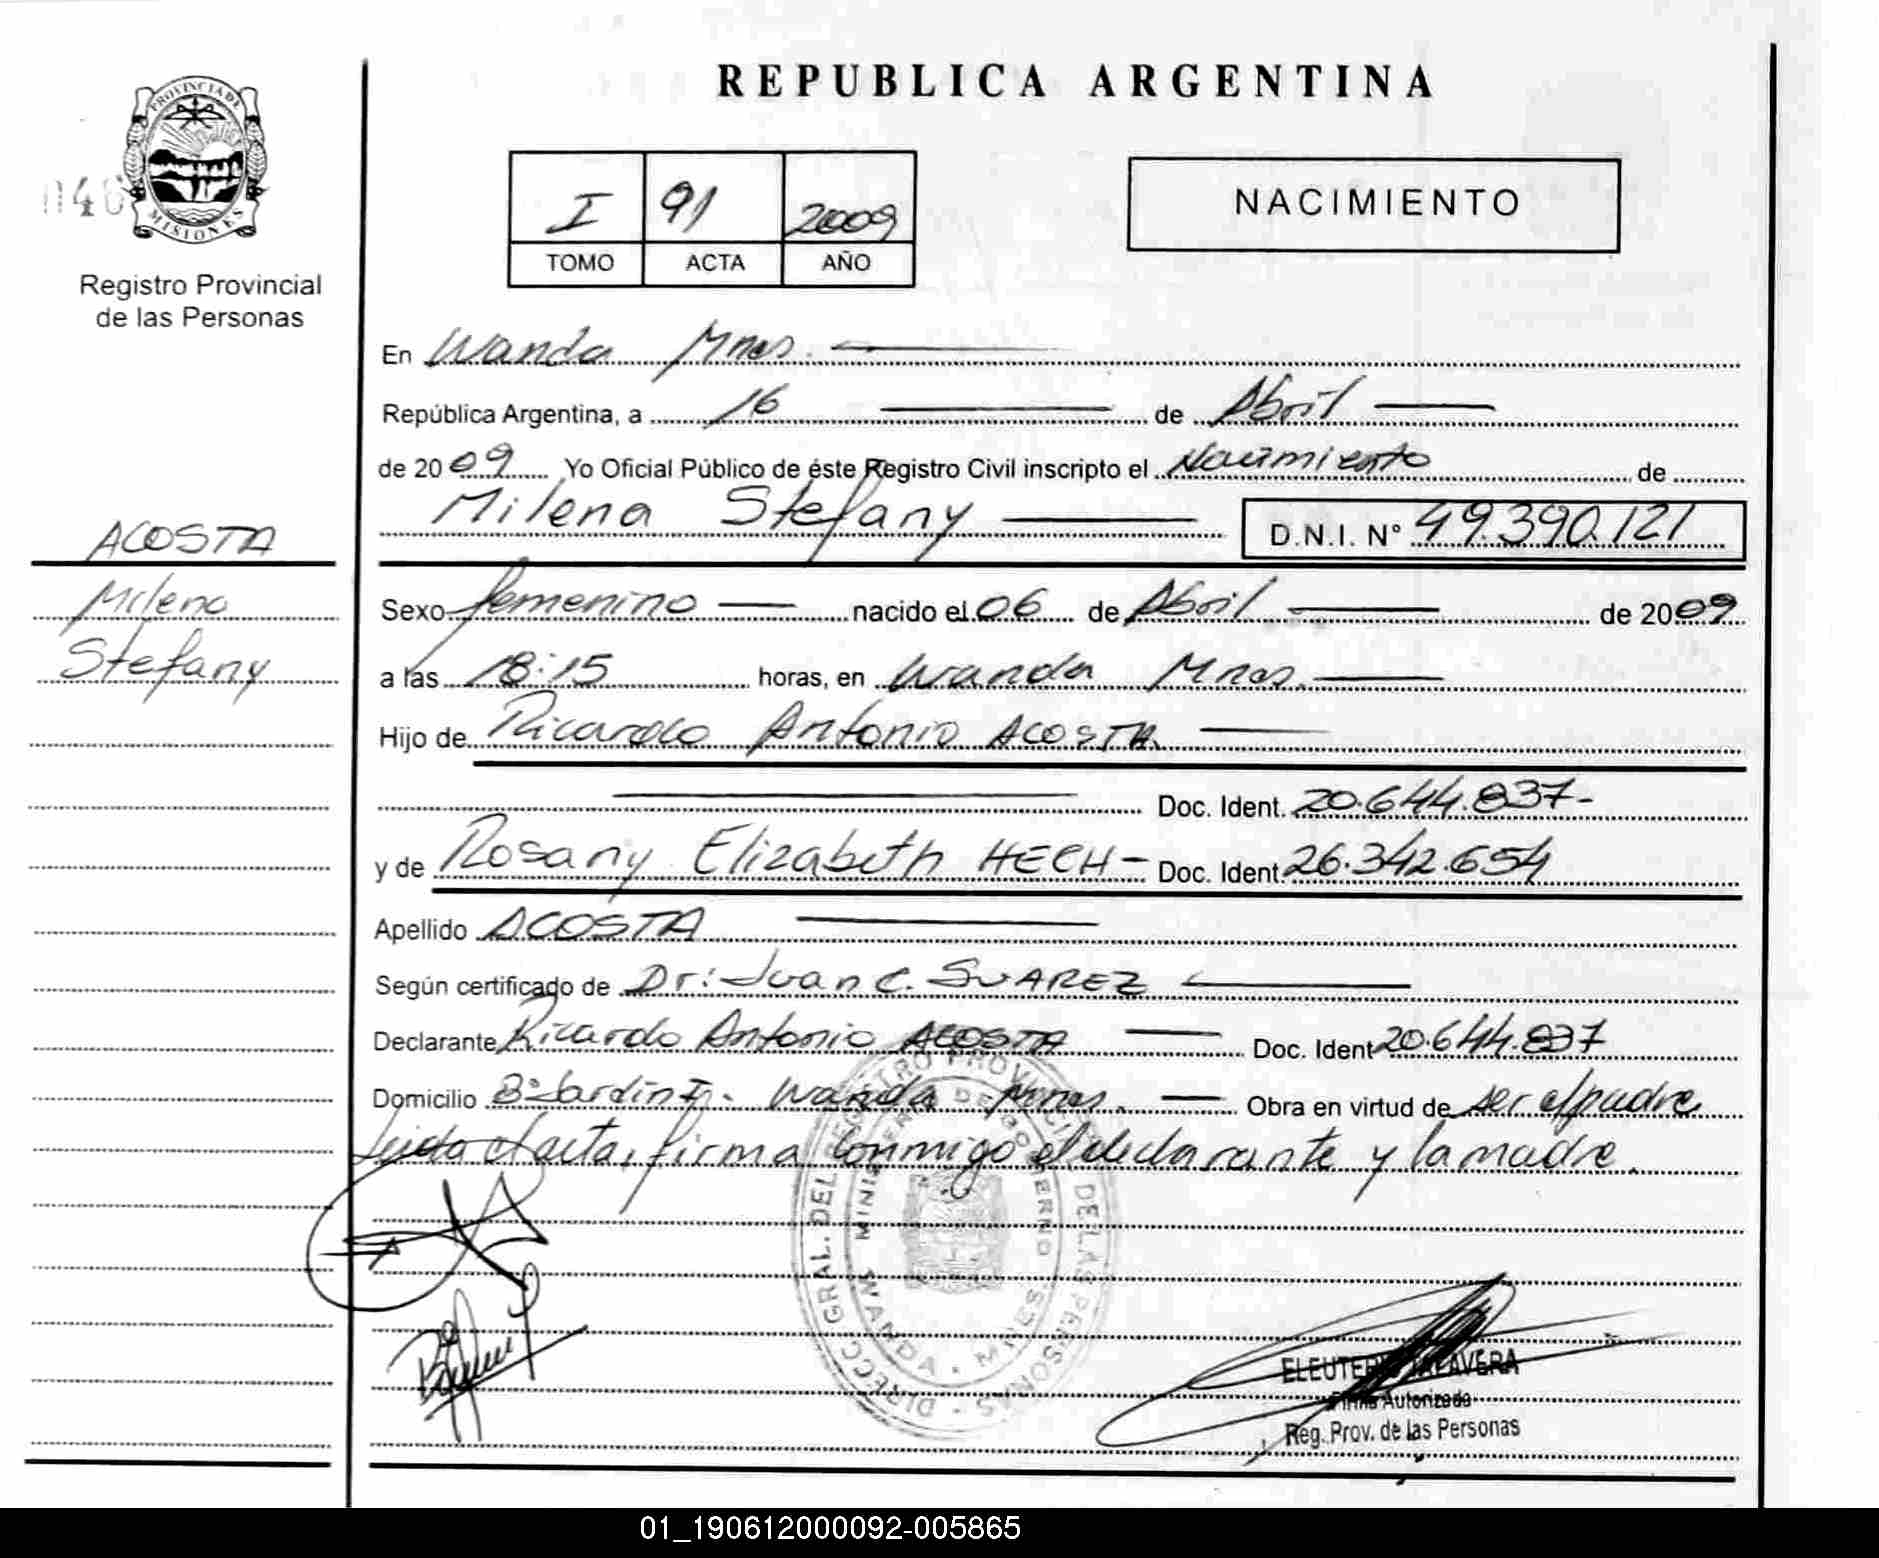 REPUBLICA ARGENTINA
PROVINCIA DE
MISIONES
Registro Provincial
de las Personas
I 91 2009
TOMO ACTA AÑO
NACIMIENTO
En Wanda Mnes.
República Argentina, a 16 de Abril
de 2009 Yo Oficial Público de éste Registro Civil inscripto el Nacimiento de
Milena Stefany D.N.I. N° 49.390.121
ACOSTA
Milena
Stefany
Sexo femenino nacido el 06 de Abril de 2009
a las 18:15 horas, en Wanda Mnes.
Hijo de Ricardo Antonio ACOSTA
Doc. Ident. 20.644.837-
y de Rosany Elizabeth HECH- Doc. Ident. 26.342.654
Apellido ACOSTA
Según certificado de Dr: Juan C. SUAREZ
Declarante Ricardo Antonio ACOSTA Doc. Ident 20.644.837
Domicilio B° Jardin I. Wanda Mnes. Obra en virtud de ser el padre
Leida el acta, firma conmigo el declarante y la madre.
DIRECC. GRAL. DEL REGISTRO PROVINCIAL DE LAS PERSONAS
MINISTERIO DE GOBIERNO
WANDA - MNES
ELEUTERIO TALAVERA
Firma Autorizada
Reg. Prov. de las Personas
01_190612000092-005865